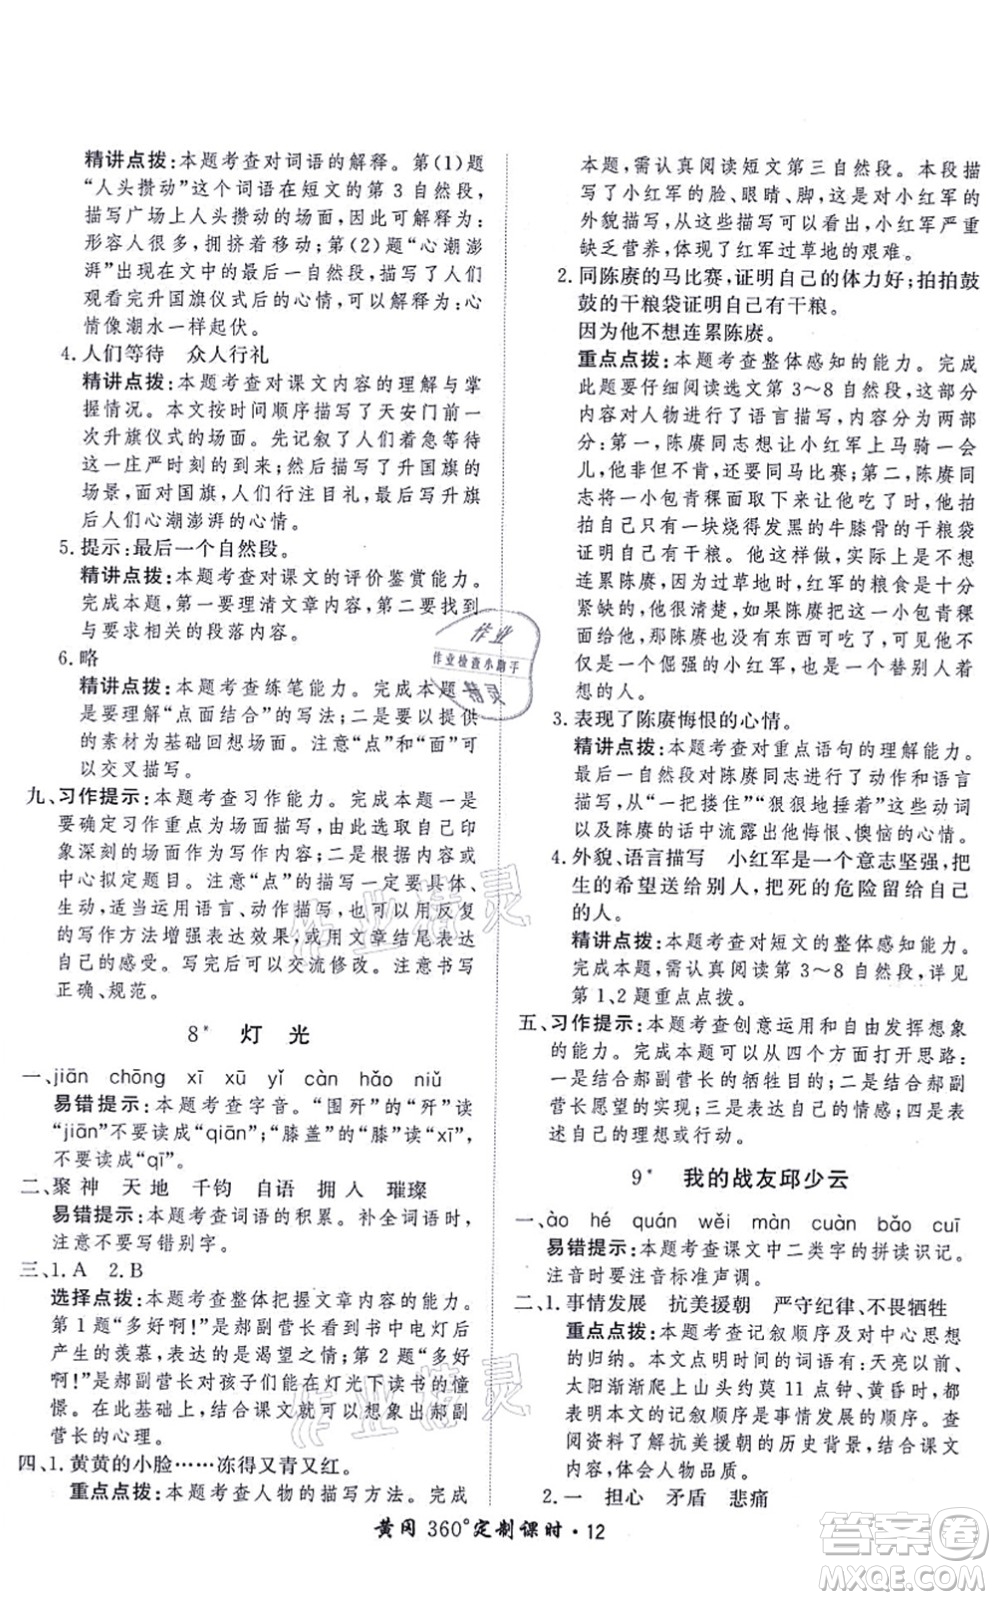 精讲点拨:本题考查对词语的解释。第(1)题
“人头攒动”这个词语在短文的第 3 自然段,
描写广场上人头攒动的场面,因此可解释为:
形容人很多,拥挤着移动;第(2)题“心潮澎
湃”出现在文中的最后一自然段,描写了人们
观看完升国旗仪式后的心情,可以解释为:心
情像潮水一样起伏。
4. 人们等待 众人行礼
精讲点拨:本题考查对课文内容的理解与掌
握情况。本文按时间顺序描写了天安门前一
次升旗仪式的场面。先记叙了人们着急等待
这一庄严时刻的到来,然后描写了升国旗的
场景,面对国旗,人们行注目礼,最后写升旗
后人们心潮澎湃的心情。
5. 提示:最后一个自然段。
精讲点拨:本题考查对课文的评价鉴赏能力。
完成本题,第一要理清文章内容,第二要找到
与要求相关的段落内容。
6. 略
精讲点拨:本题考查练笔能力。完成本题一
是要理解“点面结合”的写法;二是要以提供
的素材为基础回想场面。注意“点”和“面”可
以交叉描写。
九、习作提示:本题考查习作能力。完成本题一是
要确定习作重点为场面描写,其次选取自己印
象深刻的场面,可以是比赛、活动、演出等,围绕
中心拟定题目。注意“点”的描写一定要具体、
生动,适当运用语言、动作描写,可以运用反复
的写作方法增强表达效果,或用文章结尾表达
自己的感受。写完后可以交流修改。注意书写
正确、规范。
8* 灯 光
一、jiān chōng xī xū yǐ càn hǎo niǔ
易错提示:本题考查字音。“围歼”的“歼”读
“jiān”不要读成“qiān”;“膝盖”的“膝”读“xī”,
不要读成“qī”。
二、聚 神 天 地 千钧 自语 拥 人 璀璨
易错提示:本题考查词语的积累。补全词语时,
注意不要写错别字。
三、1. A 2. B
选择点拨:本题考查整体把握文章内容的能力。
第 1 题“多好啊!”是郝副营长看到书中电灯后
产生的羡慕,表达的是渴望之情;第 2 题“多好
啊!”是郝副营长对孩子们能在灯光下读书的憧
憬。在此基础上,结合课文就可以想象出郝副
营长的心理。
四、1. 黄黄的小脸……冻得又青又红。
重点点拨:本题考查人物的描写方法。完成
本题,需认真阅读短文第三自然段。本段描
写了小红军的脸、眼睛、脚,这些是对小红军的
外貌描写,从这些描写可以看出,小红军严重
缺乏营养,体现了红军过草地的艰难。
2. 同陈赓的马比赛,证明自己的体力好;拍拍鼓
鼓的干粮袋证明自己有干粮。
因为他不想连累陈赓。
重点点拨:本题考查整体感知的能力。完成
此题要仔细阅读选文第 3～8 自然段,这些内
容对人物进行了语言描写,分为内容为两部
分:第一,陈赓同志想让小红军上马骑一会
儿,他不但不肯,还要同马比赛;第二,陈赓同
志将一小包青稞面取下来让他吃了时,他拍
拍只有一块烧得发黑的牛膝骨的干粮袋
证明自己有干粮。他这样做,就是不想
连累陈赓,因为过草地时,红军的粮食是十分
紧缺的,这时候,如果陈赓把这一小包青稞
面给他,陈赓就只能饿肚子,这样会拖累陈
赓。这是一个倔强的小红军,总是在为别人
着想的人。
3. 表现了陈赓悔恨的心情。
精讲点拨:本题考查对重点语句的理解能力。
这部分内容对陈赓同志进行了动作和语言
描写,都可以看出“一把搂住”“狠狠地捶着”这些动词
以及陈赓的话中流露出他悔恨、懊恼的心情。
4. 外貌、语言描写 小红军是一个意志坚强,把
生的希望送给别人,把死的危险留给自己
的人。
精讲点拨:本题考查对短文的整体感知能力。
完成本题,需认真阅读第 3～8 自然段,详见
第 1、2 题重点点拨。
五、习作提示:本题考查创意运用和自由发挥想象
的能力。完成本题可以从四个方面打开思路:
一是结合郝副营长的牺牲展开;二是结合郝副
营长愿望的实现;三是表达自己的情感;四是表
述自己的理想或行动。
9* 我的战友邱少云
一、ào hé quán wěi màn cuàn bǎo cuī
易错提示:本题考查课文中二类字的拼读识记。
注音时要注音标准声调。
二、1. 事情发展 抗美援朝 严守纪律、不畏牺牲
重点点拨:本题考查记叙顺序及对中心思想
的归纳。本文点明时间的词语有:天亮以前、
太阳渐渐爬上山头约莫 11 点钟、黄昏时候。
表明本文的记叙顺序是事情发展的顺序。查
阅资料了解抗美援朝的历史背景,结合课文
内容,体会人物品质。
2. 一 担心 矛盾 悲痛
黄冈 360°定制课时 · 12
作业
作业检查小助手
精灵
作业精灵
作业精灵
答案圈
MXQE.COM